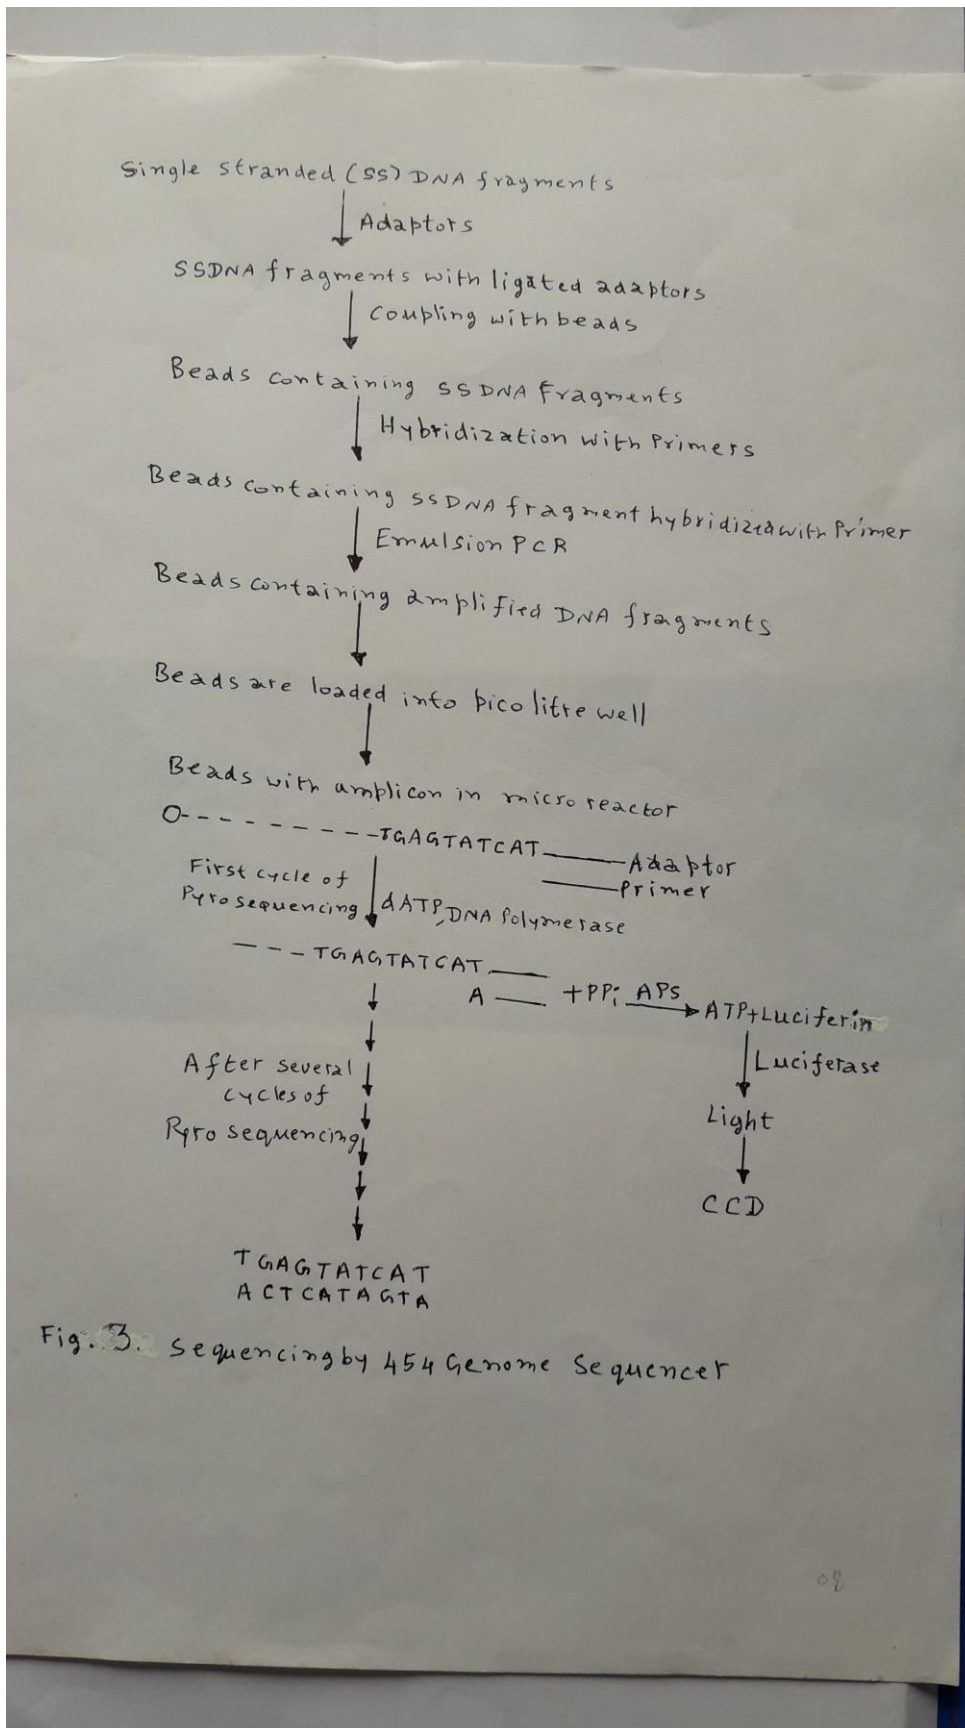 Single stranded (SS) DNA fragments
Adaptors
SSDNA fragments with ligated adaptors
Coupling with beads
Beads containing SSDNA Fragments
Hybridization with Primers
Beads containing SSDNA fragment hybridized with Primer
Emulsion PCR
Beads containing amplified DNA fragments
Beads are loaded into pico litre well
Beads with amplicon in micro reactor
O- - - - - - - - - -TGAGTATCAT Adaptor
Primer
First cycle of
Pyrosequencing dATP, DNA Polymerase
- - - TGAGTATCAT
A +PPi APS ATP+Luciferin
Luciferase
After several
cycles of
Pyro sequencing
Light
CCD
TGAGTATCAT
ACTCATAGTA
Fig. 3. Sequencing by 454 Genome Sequencer
08